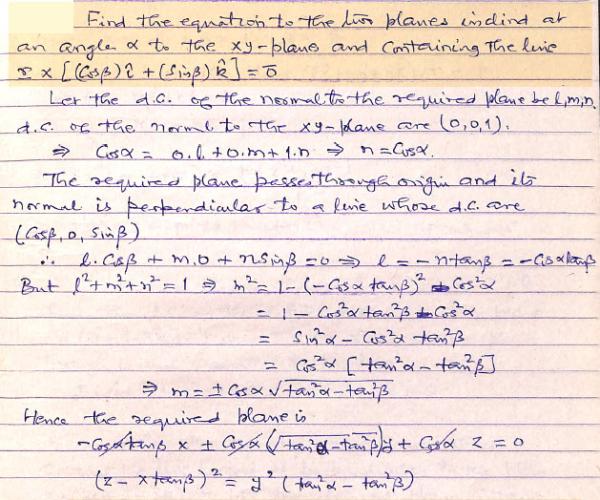 Find the equation to the two planes inclind at
an angle α to the xy-plane and containing the line
r × [(Cosβ) î + (Sinβ) k̂] = 0̄
Let the d.c. of the normal to the required plane be l, m, n.
d.c. of the norml to the xy-plane are (0,0,1).
⇒ Cosα = 0.l + 0.m + 1.n ⇒ n = Cosα.
The required plane passes through origin and its
normal is perpendicular to a line whose d.c. are
(Cosβ, 0, Sinβ)
∴ l.Cosβ + m.0 + n Sinβ = 0 ⇒ l = -n tanβ = -Cosα tanβ
But l² + m² + n² = 1 ⇒ m² = 1 - (-Cosα tanβ)² - Cos²α
= 1 - Cos²α tan²β - Cos²α
= Sin²α - Cos²α tan²β
= Cos²α [tan²α - tan²β]
⇒ m = ± Cosα √tan²α - tan²β
Hence the required plane is
-Cosα tanβ x ± Cosα (√tan²α - tan²β) y + Cosα z = 0
(z - x tanβ)² = y² (tan²α - tan²β)